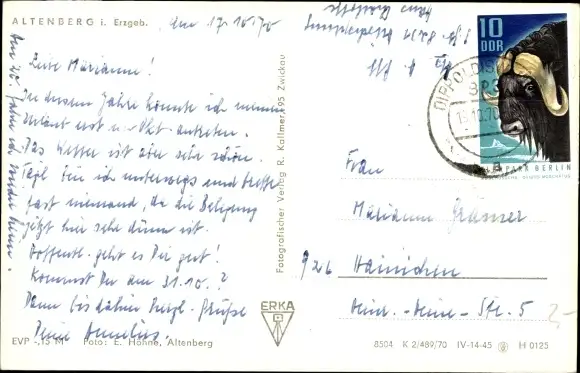 ALTENBERG i. Erzgeb.
Am 17.10.70
Liebe Marianne!
In diesem Jahre konnte ich meinen
Urlaub erst im Okt. antreten.
Das Wetter ist aber sehr schön.
Tägl. bin ich unterwegs und treffe
fast niemand, da die Belegung
jetzt hier sehr dünn ist.
Hoffentl. geht es Dir gut!
Kommst Du am 31.10.?
Dann bis dahin herzl. Grüße
Deine Annelies.
EVP -,15 M Foto: E. Höhne, Altenberg
Fotografischer Verlag R. Kallmer, 95 Zwickau
ERKA
10
DDR
DIPPOLDISW
TIERPARK BERLIN
Frau
Marianne
926 Hainichen
Heinr.-Heine-Str. 5
2,-
8504 K 2/489/70 IV-14-45 H 0125